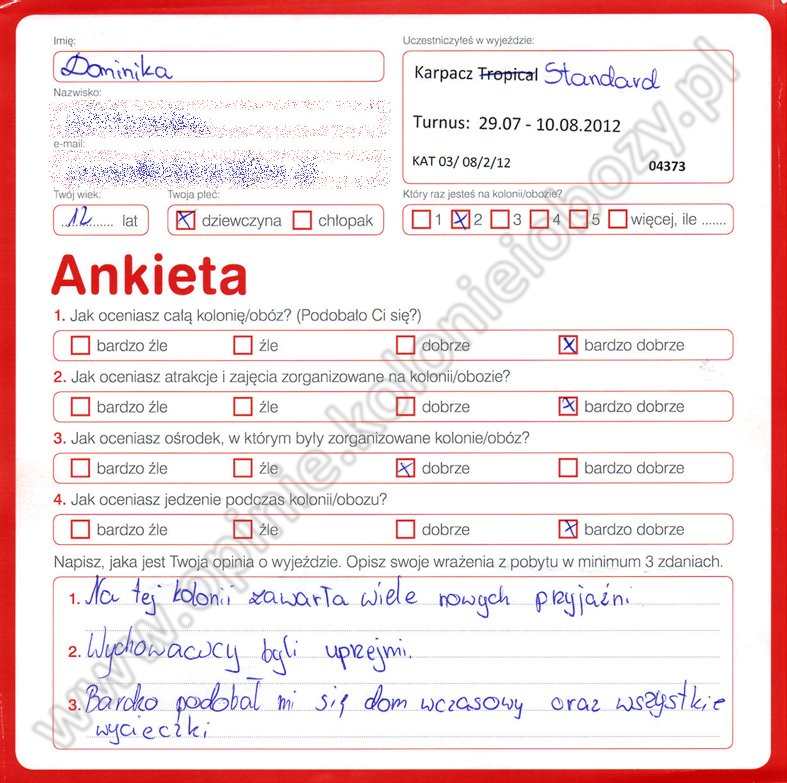 Imię:
Dominika
Nazwisko:
e-mail:
Twój wiek:
12 lat
Twoja płeć:
dziewczyna chłopak
Uczestniczyłeś w wyjeździe:
Karpacz Tropical Standard
Turnus: 29.07 - 10.08.2012
KAT 03/ 08/2/12 04373
Który raz jesteś na kolonii/obozie?
1 2 3 4 5 więcej, ile .......
Ankieta
1. Jak oceniasz całą kolonię/obóz? (Podobało Ci się?)
bardzo źle źle dobrze bardzo dobrze
2. Jak oceniasz atrakcje i zajęcia zorganizowane na kolonii/obozie?
bardzo źle źle dobrze bardzo dobrze
3. Jak oceniasz ośrodek, w którym były zorganizowane kolonie/obóz?
bardzo źle źle dobrze bardzo dobrze
4. Jak oceniasz jedzenie podczas kolonii/obozu?
bardzo źle źle dobrze bardzo dobrze
Napisz, jaka jest Twoja opinia o wyjeździe. Opisz swoje wrażenia z pobytu w minimum 3 zdaniach.
1. Na tej kolonii zawarła wiele nowych przyjaźni
2. Wychowawcy byli uprzejmi.
3. Bardzo podobał mi się dom wczasowy oraz wszystkie
wycieczki
www.opinie.kolonieiobozy.pl